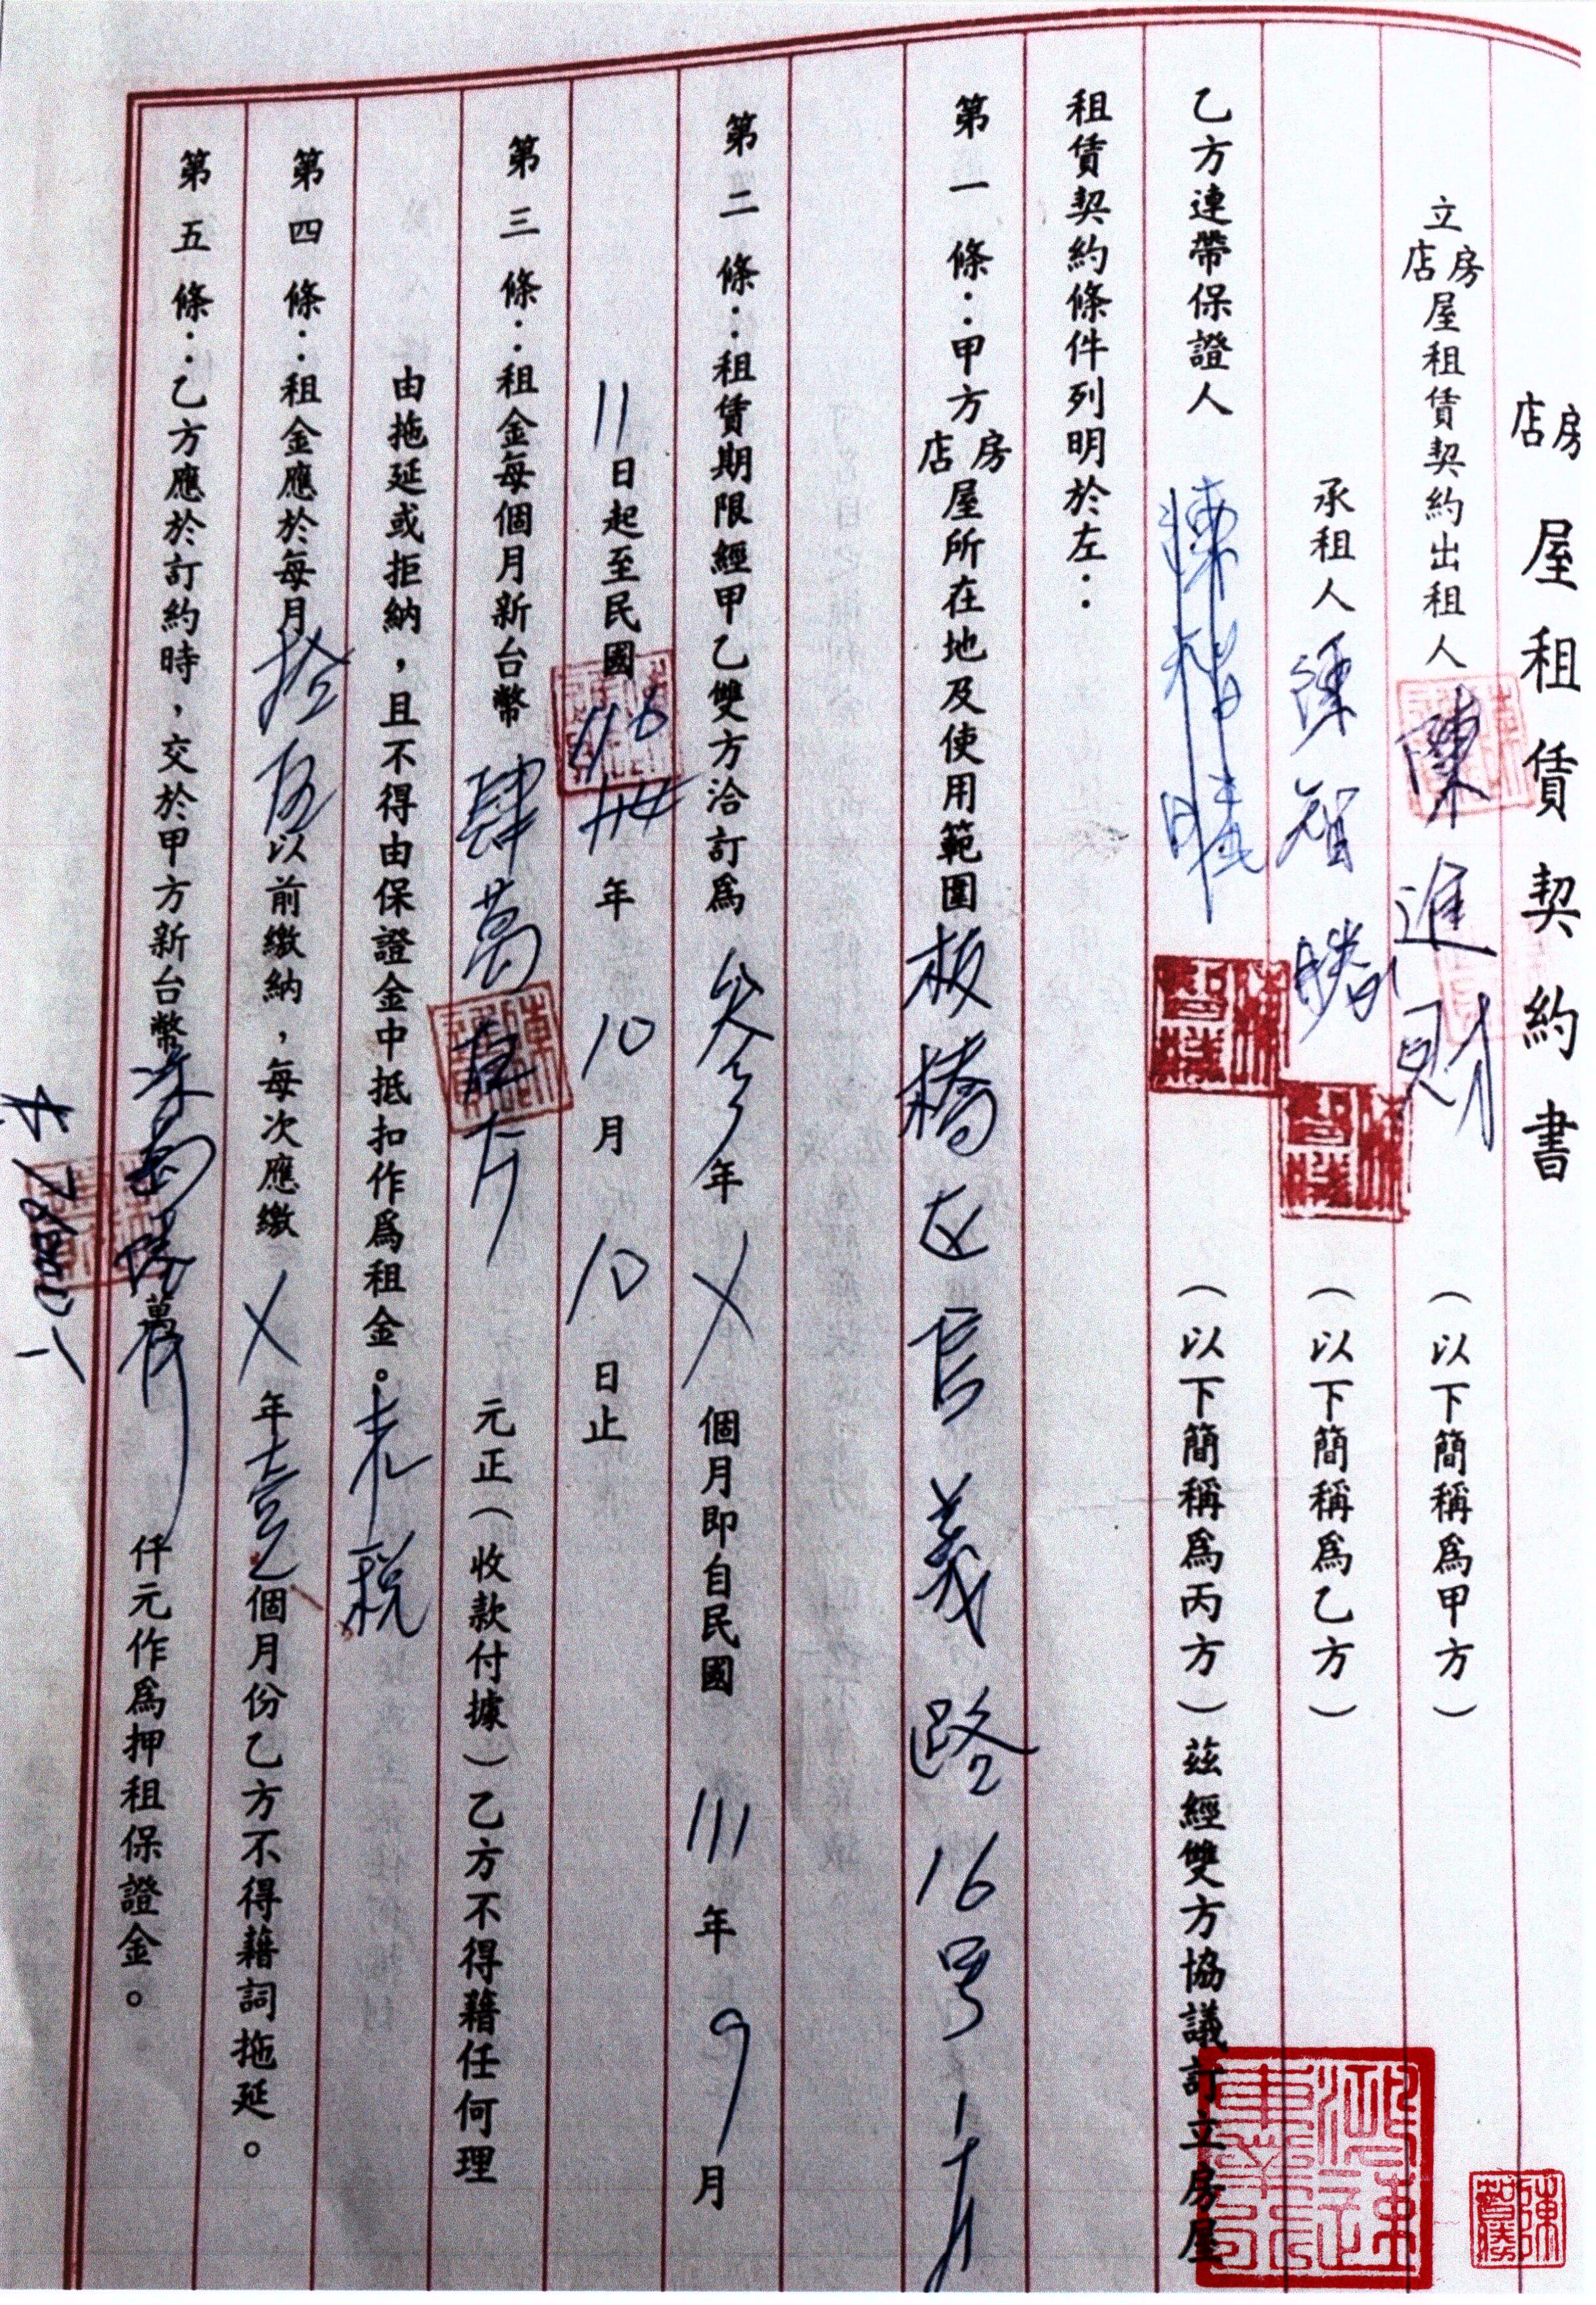 店房屋租賃契約書
立店房屋租賃契約出租人陳進財（以下簡稱為甲方）
承租人陳智勝（以下簡稱為乙方）
乙方連帶保證人（以下簡稱為丙方）茲經雙方協議訂立房屋
租賃契約條件列明於左：
第一條：甲方店房屋所在地及使用範圍板橋區長義路16号1才
第二條：租賃期限經甲乙雙方洽訂為參年X個月即自民國111年9月
11日起至民國116年10月10日止
第三條：租金每個月新台幣肆萬伍仟元正（收款付據）乙方不得藉任何理
由拖延或拒納，且不得由保證金中抵扣作為租金。未稅
第四條：租金應於每月拾伍以前繳納，每次應繳X年壹個月份乙方不得藉詞拖延。
第五條：乙方應於訂約時，交於甲方新台幣萬仟元作為押租保證金。
陳智勝